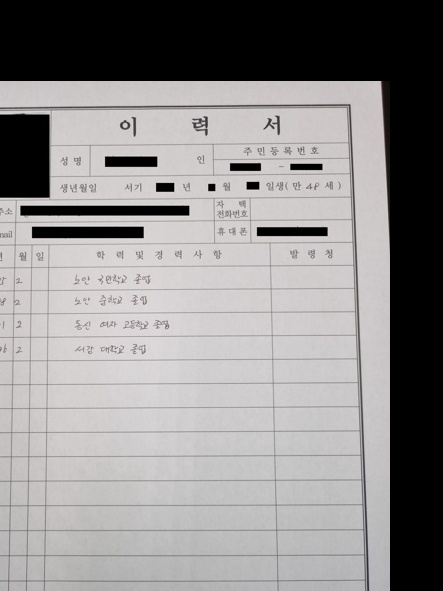 이 력 서
성 명 인 주 민 등 록 번 호
-
생년월일 서기 년 월 일생( 만 48 세 )
주소 자 택 전화번호
mail 휴 대 폰
월 일 학 력 및 경 력 사 항 발 령 청
2 노안 국민학교 졸업
8 2 노안 중학교 졸업
1 2 동신 여자 고등학교 졸업
2 서강 대학교 졸업